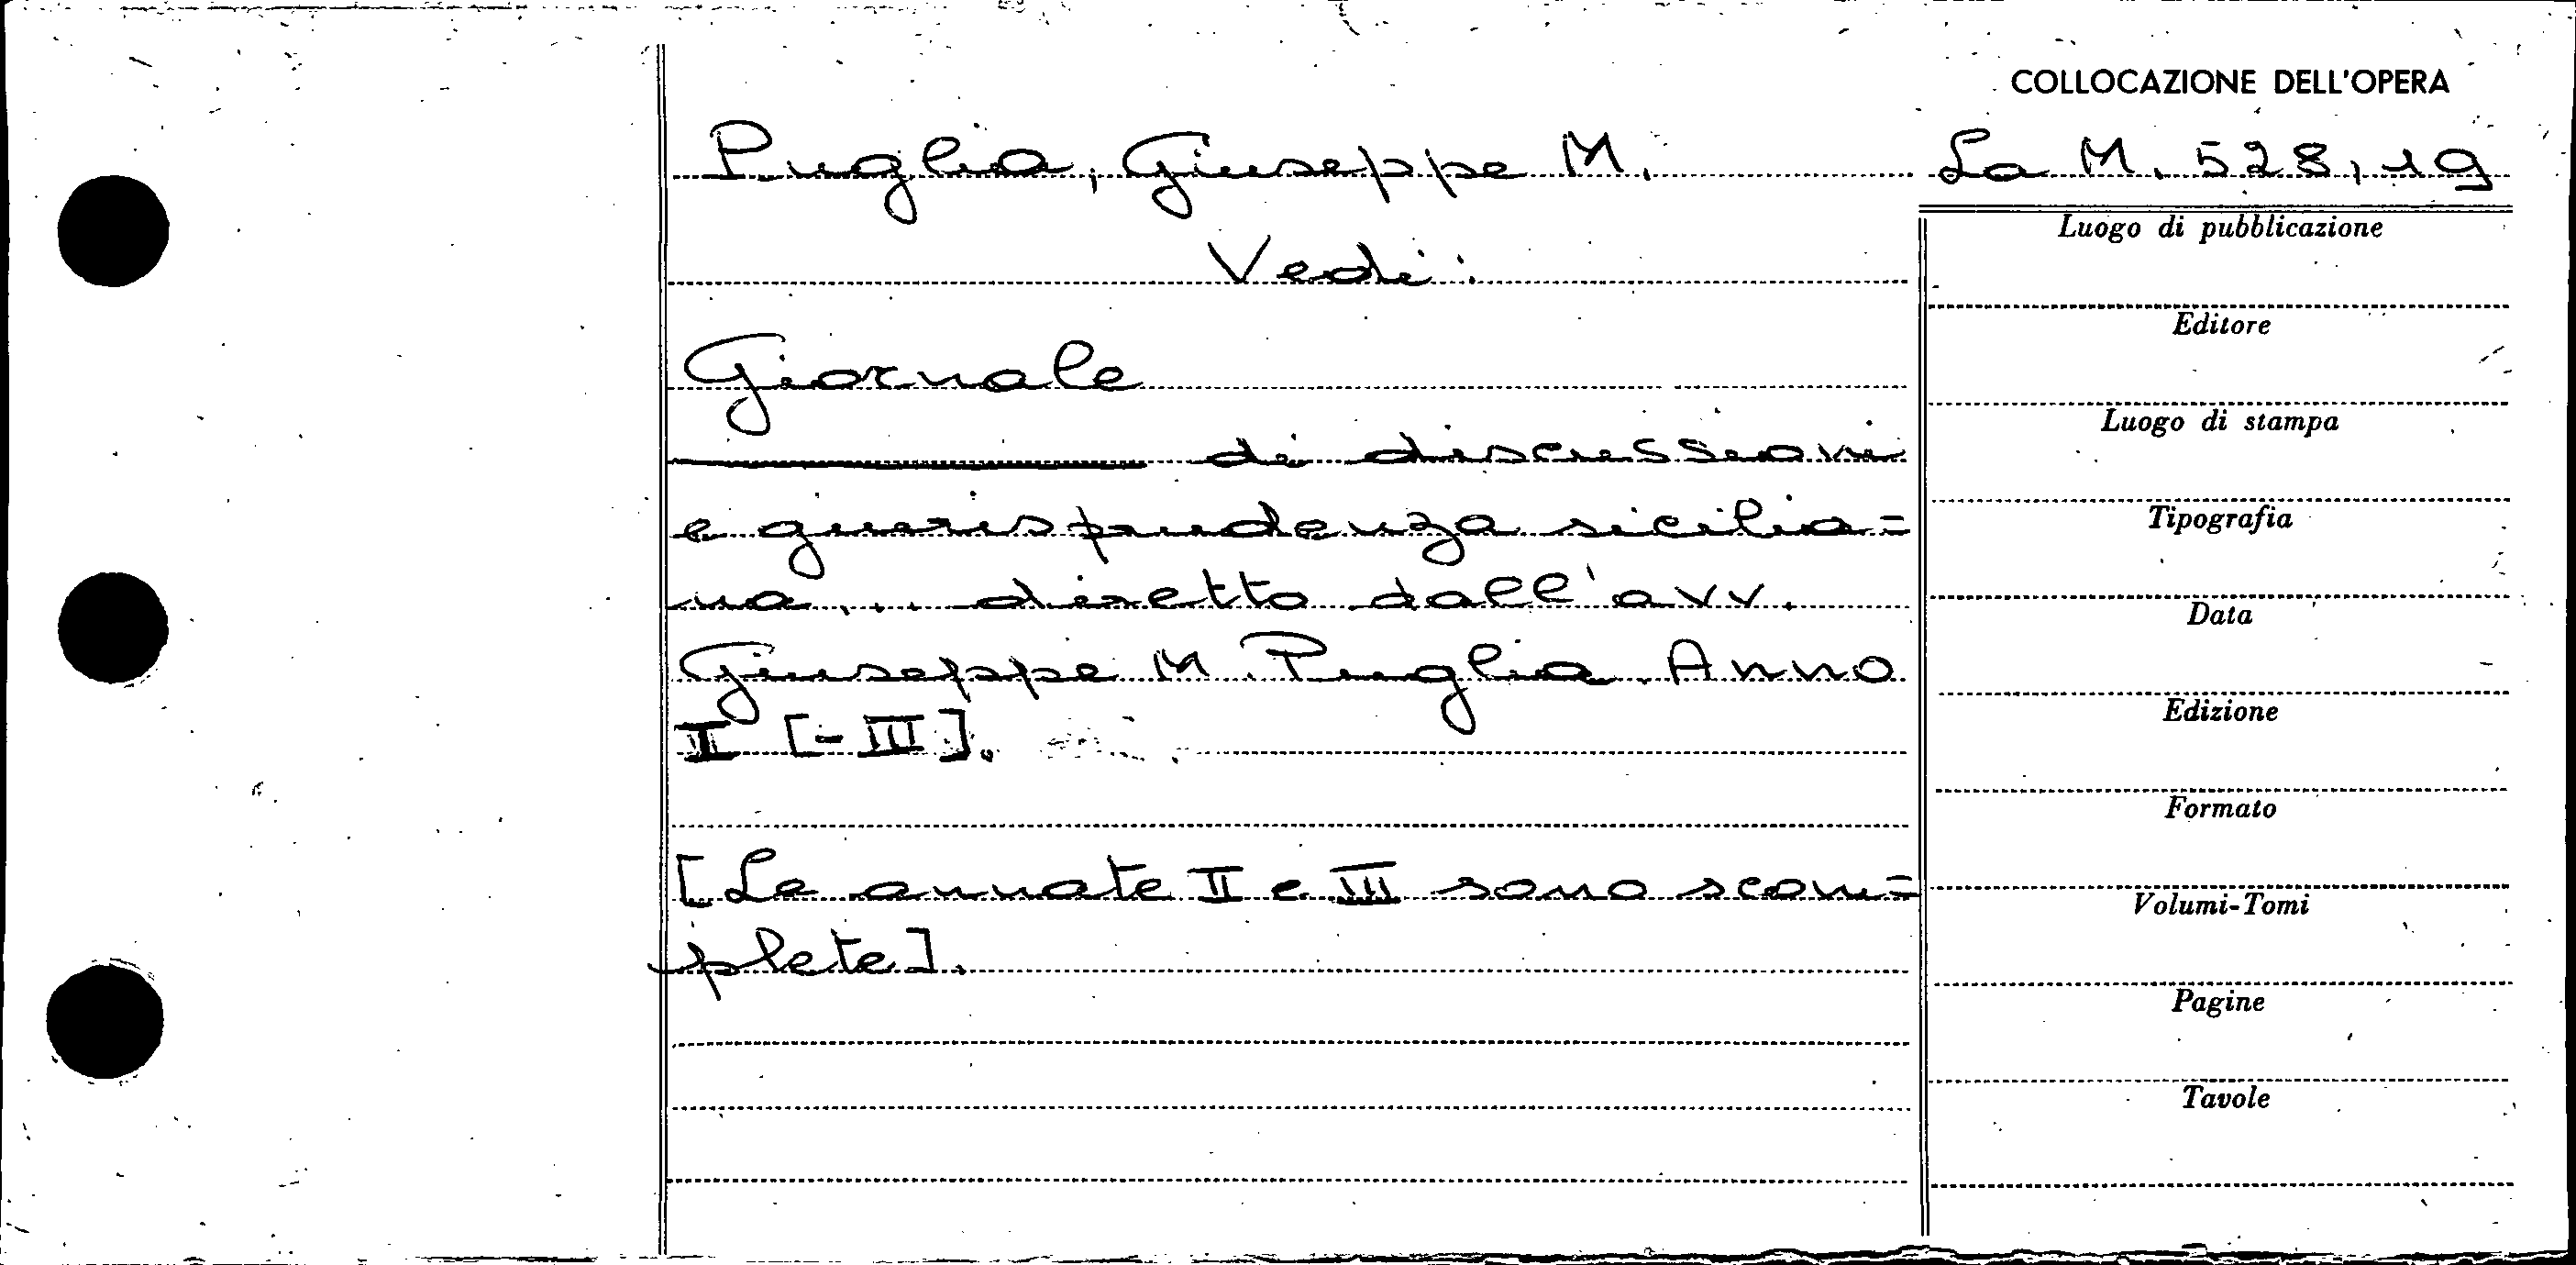 COLLOCAZIONE DELL'OPERA
Puglia, Giuseppe M. La M. 528,19
Vedi:
Giornale
——— di discussioni
e giurisprudenza sicilia=
na... diretto dall'avv.
Giuseppe M. Puglia. Anno
I [-III].
[Le annate II e III sono scom=
plete].
Luogo di pubblicazione
Editore
Luogo di stampa
Tipografia
Data
Edizione
Formato
Volumi-Tomi
Pagine
Tavole